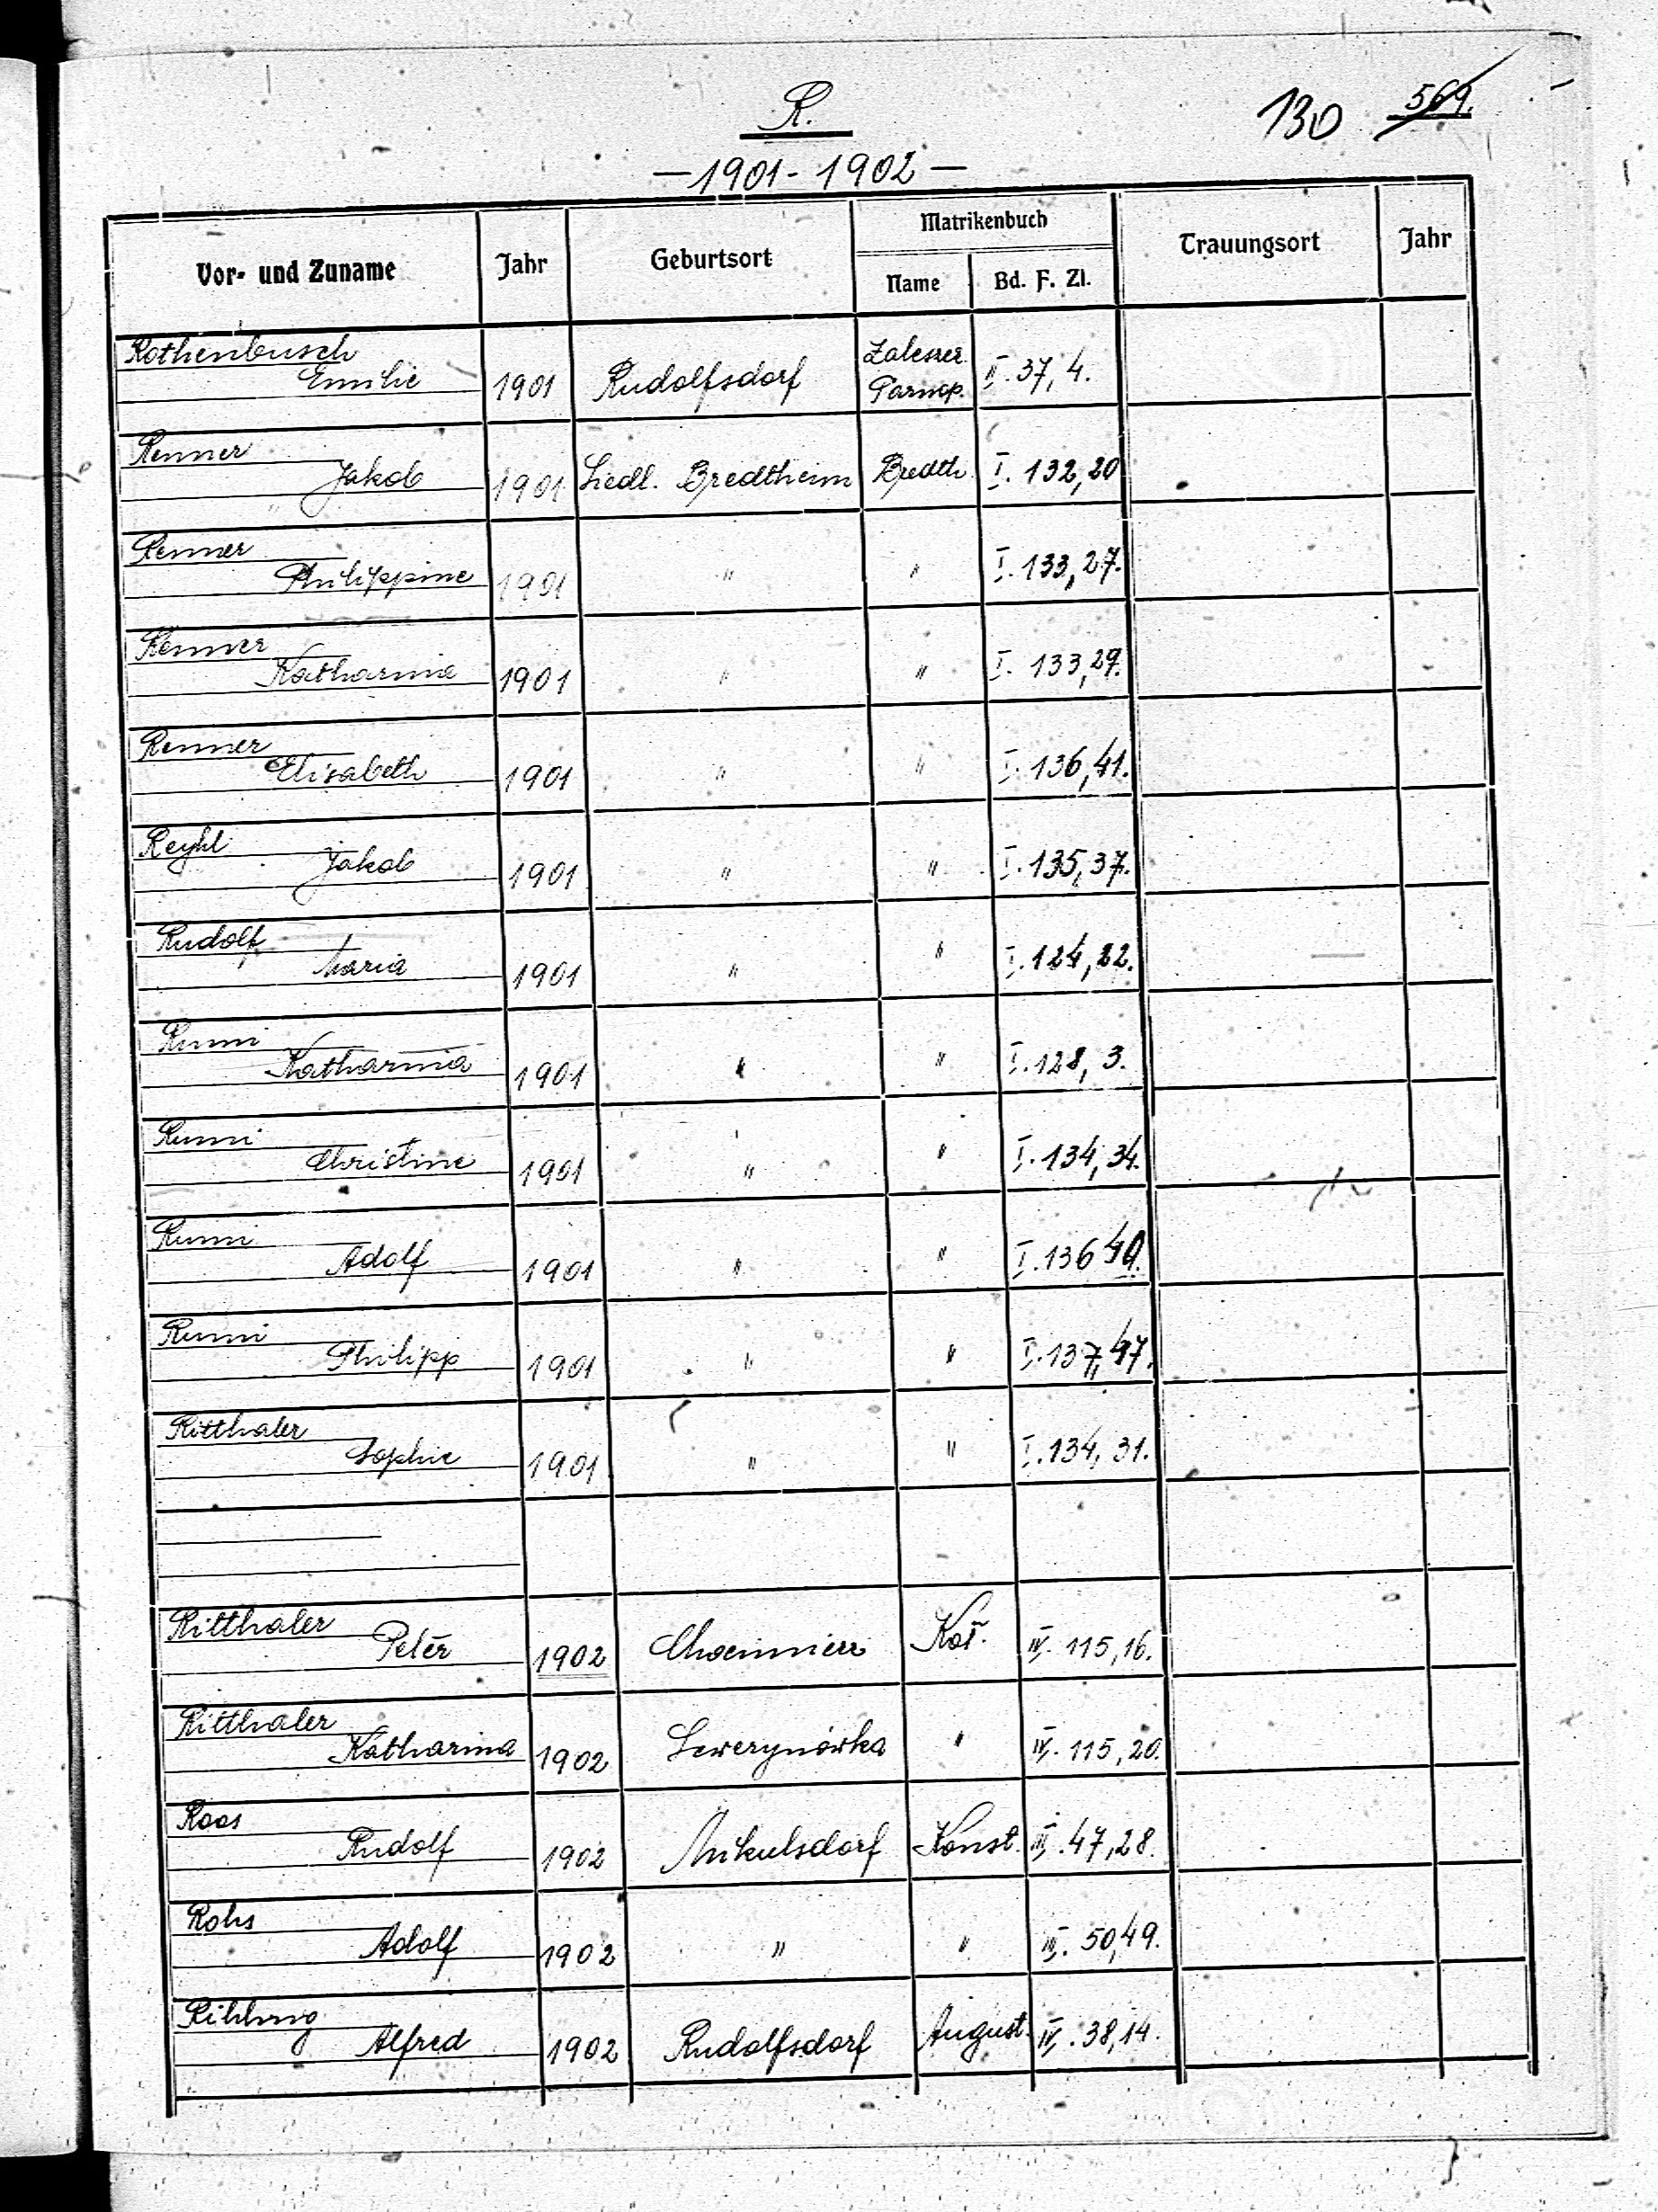 R.
130 569.
— 1901 - 1902 —
Vor- und Zuname Jahr Geburtsort Matrikenbuch Trauungsort Jahr
Name Bd. F. Zl.
Rothenbusch Zaleszcz.
Emilie 1901 Rudolfsdorf Tarnop. II. 37, 4.
Renner
Jakob 1901 Siedl. Bredtheim Bredth. I. 132, 20
Renner
Philippine 1901 " " I. 133, 27.
Renner
Katharina 1901 " " I. 133, 29.
Renner
Elisabeth 1901 " " I. 136, 41.
Reyhl
Jakob 1901 " " I. 135, 37.
Rudolf
Maria 1901 " " I. 124, 22.
Rumi
Katharina 1901 " " I. 128, 3.
Rumi
Christine 1901 " " I. 134, 34.
Rumi
Adolf 1901 " " I. 136 40.
Rumi
Philipp 1901 " " I. 137, 47.
Ritthaler
Sophie 1901 " " I. 134, 31.
Ritthaler
Peter 1902 IV. 115, 16.
Ritthaler
Katharina 1902 Sewerynówka " IV. 115, 20.
Roos
Rudolf 1902 Mikulsdorf Konst. III. 47, 28.
Rohs
Adolf 1902 " " III. 50, 49.
Rihling
Alfred 1902 Rudolfsdorf August. IV. 38, 14.